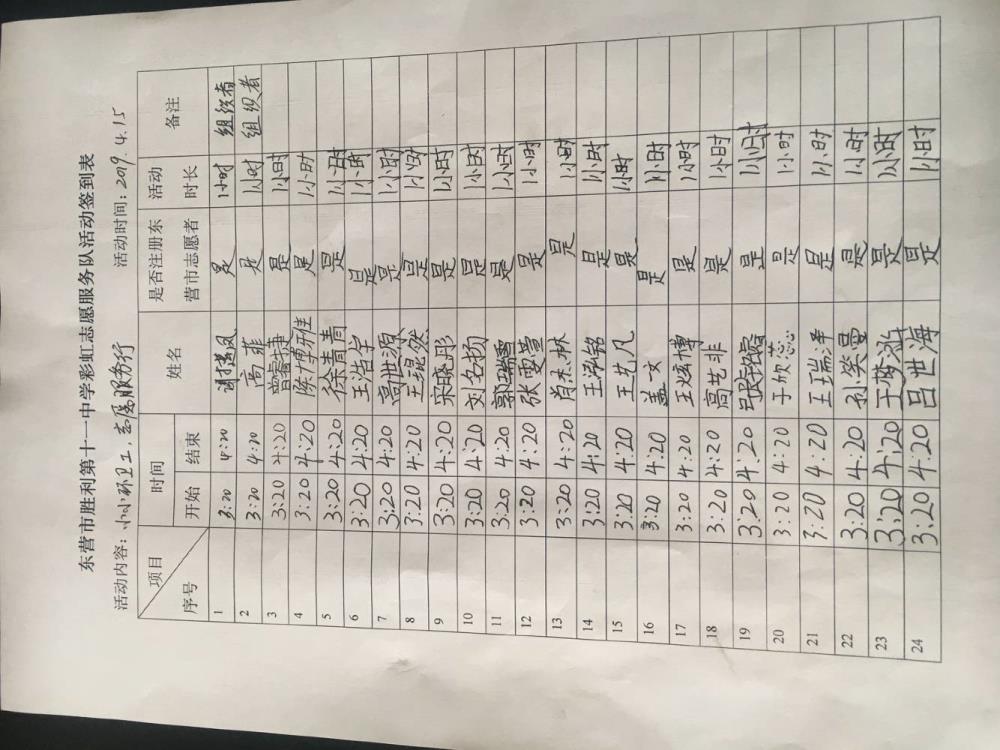 东营市胜利第十一中学彩虹志愿服务队活动签到表
活动内容：小小环卫工，志愿服务行 活动时间：2019.4.15
项目 时间 姓名 是否注册东营市志愿者 活动时长 备注
序号 开始 结束
1 3:20 4:20 谢搭风 是 1小时 组织者
2 3:30 4:30 高菲 是 1小时 组织者
3 3:20 4:20 曾睿捷 是 1小时
4 3:20 4:20 陈博雅 是 1小时
5 3:20 4:20 徐菁青 是 1小时
6 3:20 4:20 王浩宇 是 1小时
7 3:20 4:20 高世源 是 1小时
8 3:20 4:20 王焜然 是 1小时
9 3:20 4:20 宋晓彤 是 1小时
10 3:20 4:20 刘名扬 是 1小时
11 3:20 4:20 郭瑞雪 是 1小时
12 3:20 4:20 张雯萱 是 1小时
13 3:20 4:20 肖杰林 是 1小时
14 3:20 4:20 王泓铭 是 1小时
15 3:20 4:20 王艺凡 是 1小时
16 3:20 4:20 盖文 是 1小时
17 3:20 4:20 王炫博 是 1小时
18 3:20 4:20 高艺非 是 1小时
19 3:20 4:20 张铭睿 是 1小时
20 3:20 4:20 于欣蕊 是 1小时
21 3:20 4:20 王瑞泽 是 1小时
22 3:20 4:20 孙笑曼 是 1小时
23 3:20 4:20 王梦涵 是 1小时
24 3:20 4:20 吕世海 是 1小时